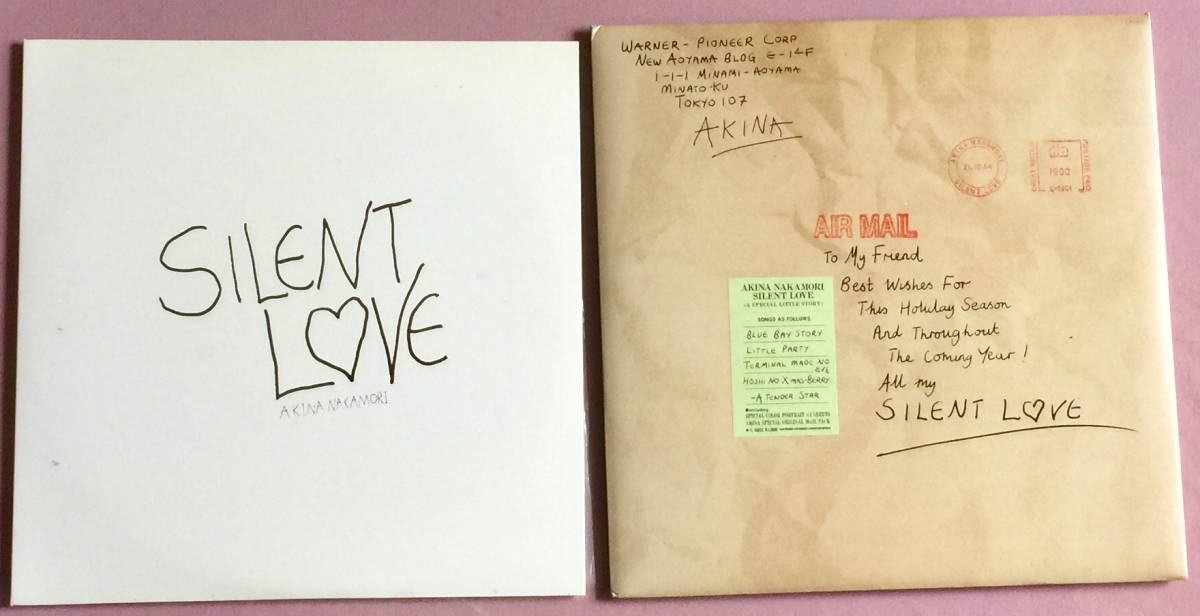 SILENT
LOVE
AKINA NAKAMORI
WARNER-PIONEER CORP
NEW AOYAMA BLDG E-14F
1-1-1 MINAMI-AOYAMA
MINATO-KU
TOKYO 107
AKINA
AKINA NAKAMORI
SILENT LOVE
1900
AIR MAIL
To My Friend
Best Wishes For
This Holiday Season
And Throughout
The Coming Year!
All my
SILENT LOVE
AKINA NAKAMORI
SILENT LOVE
(A SPECIAL LITTLE STORY)
SONGS AS FOLLOWS
BLUE BAY STORY
LITTLE PARTY
TERMINAL MADE NO
EVE
HOSHI NO X'MAS-BERRY
-A TENDER STAR
including
SPECIAL COLOR PORTRAIT
AKINA SPECIAL ORIGINAL MAIL PACK